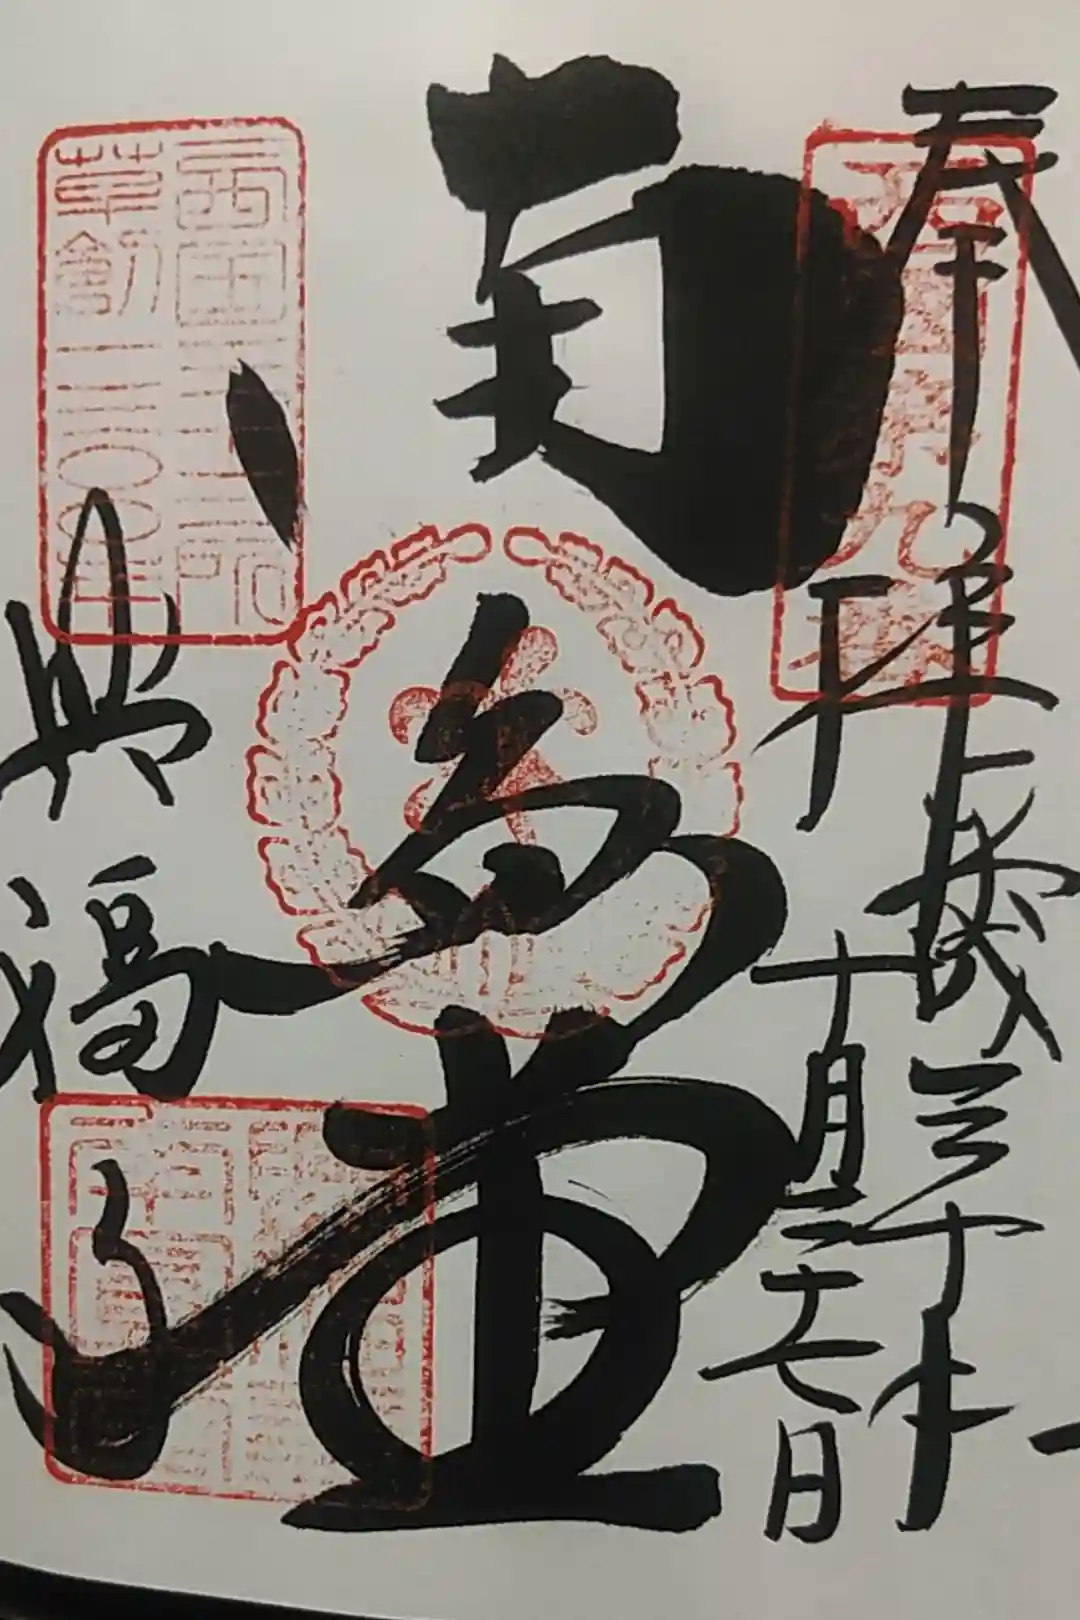 奉拝
西國第九番
平成三十年
十月二十七日
南圓堂
西国三十三所
草創一三〇〇年
興福寺